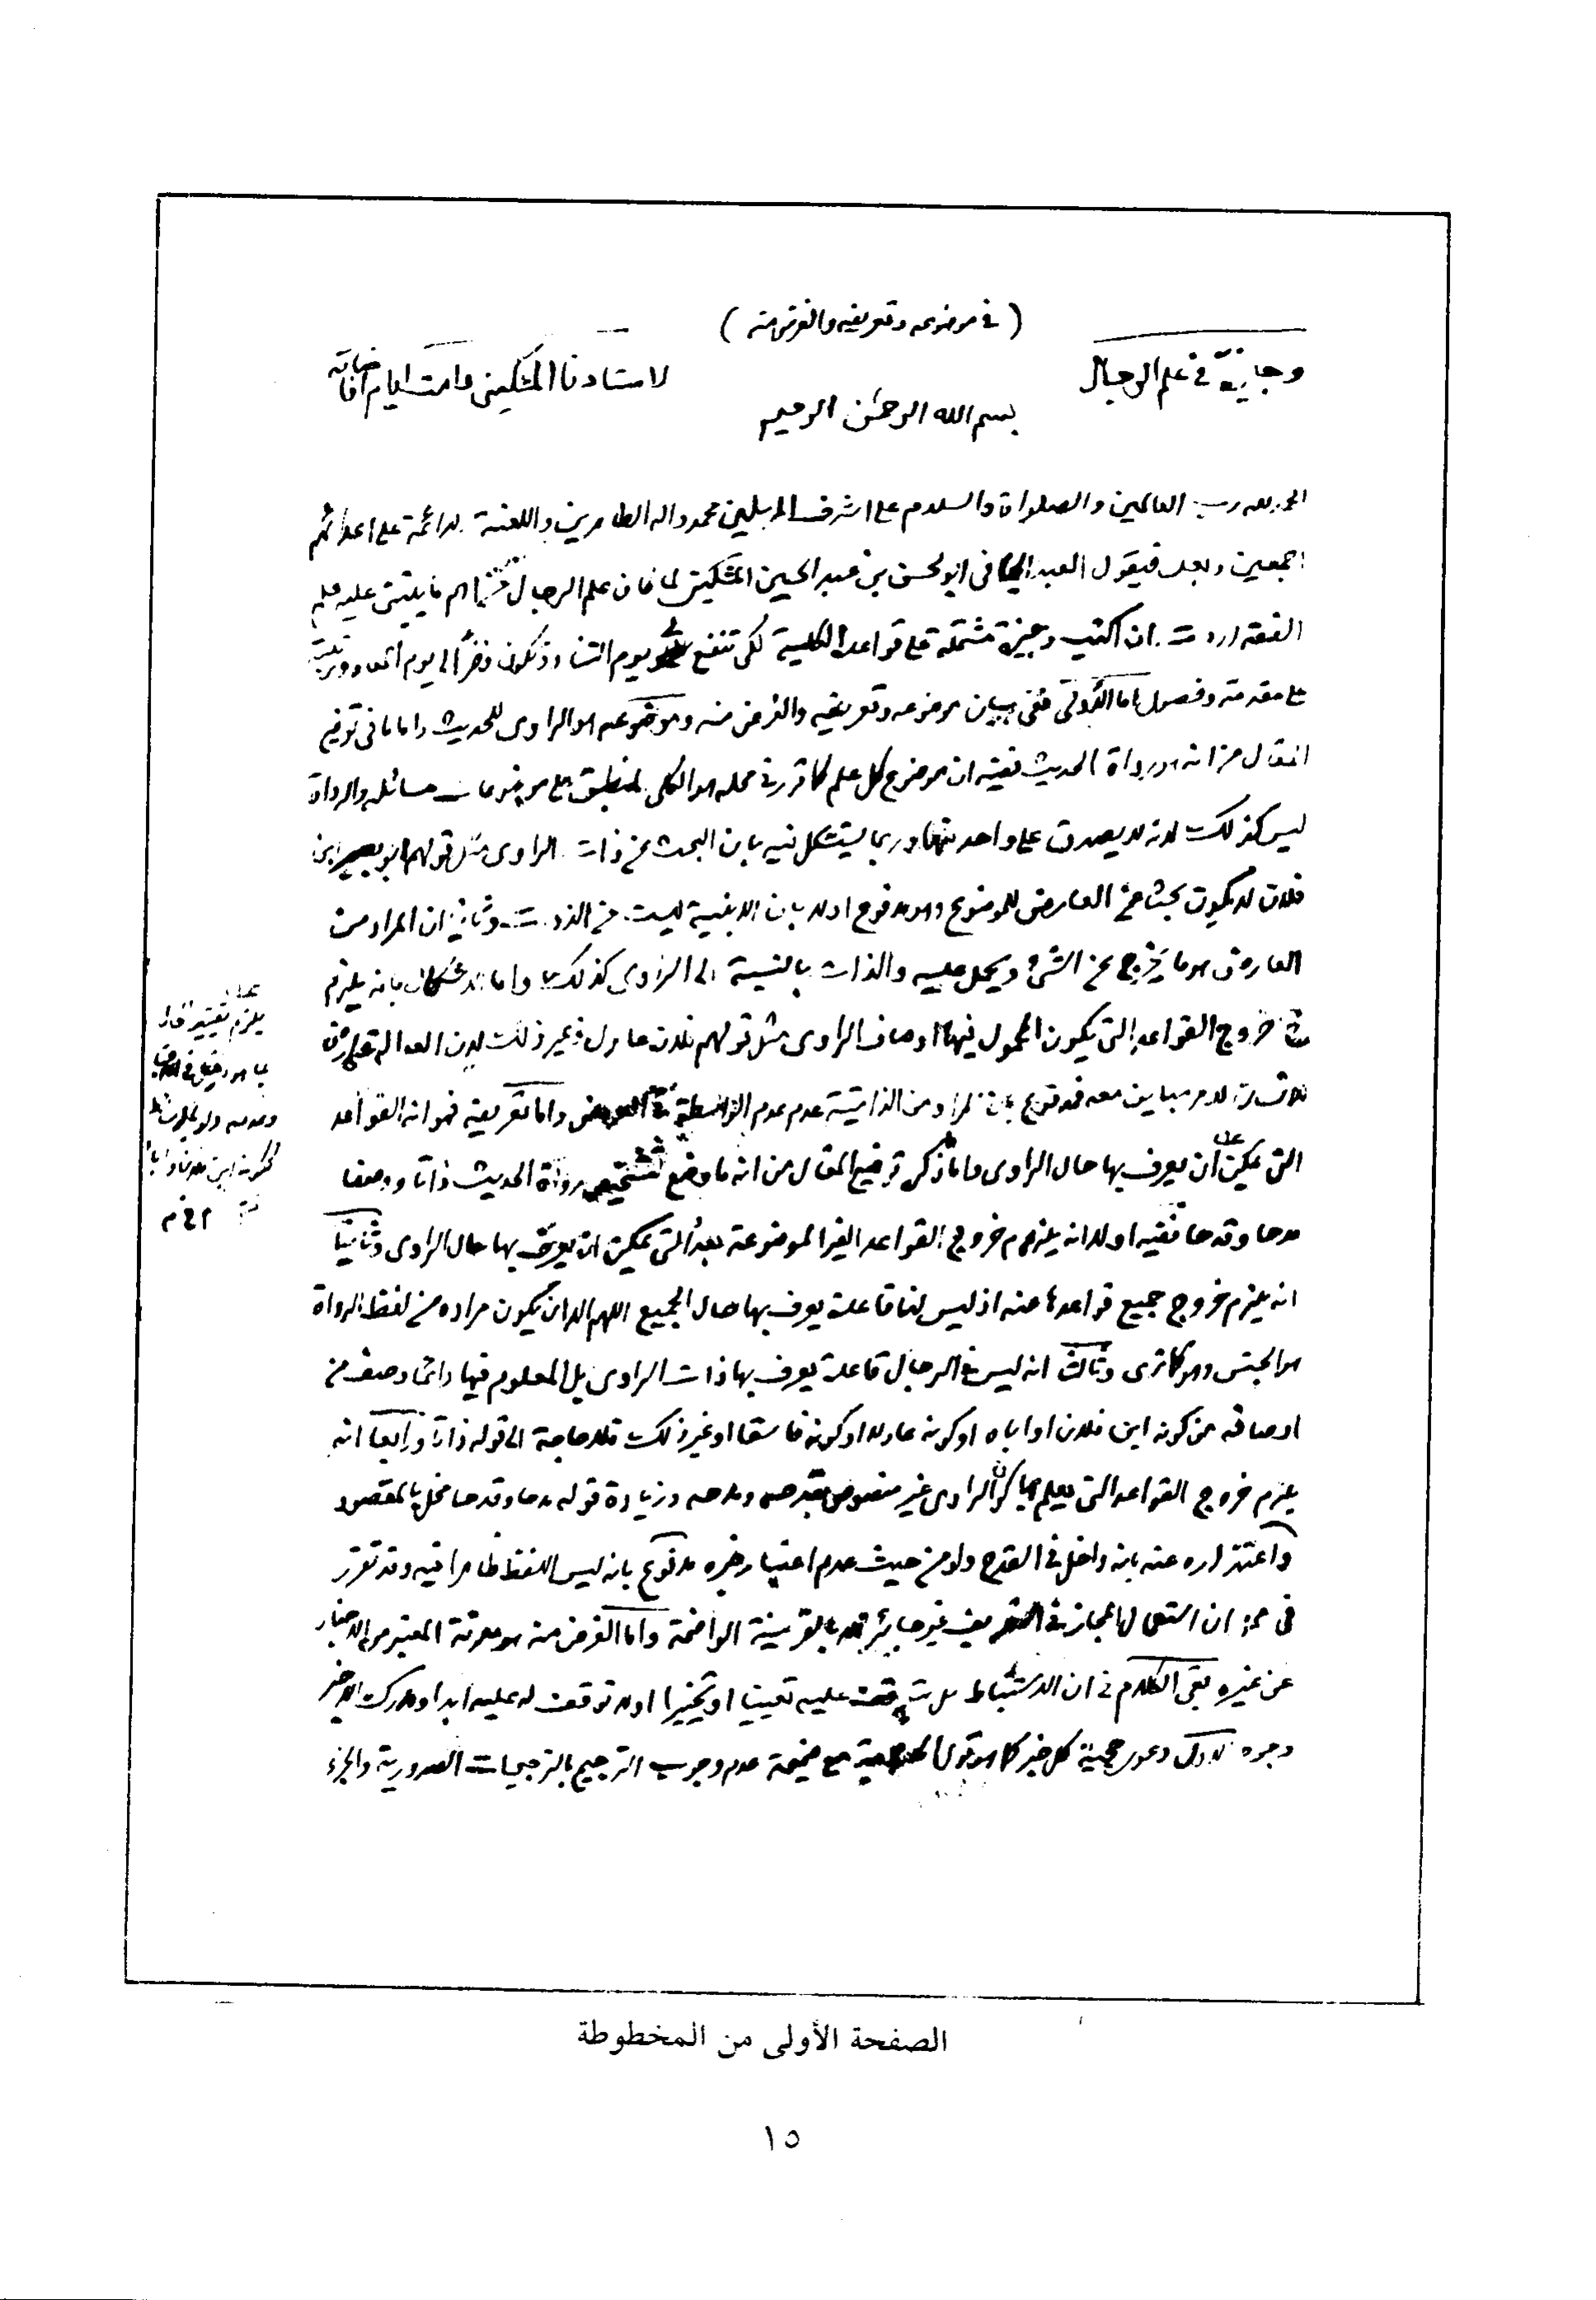 ( في موضوعه وتعريفه والغرض منه )
وجازيّة في علم الرجال
لاستادنا المشكيني دامت ايام افاضاته
بسم الله الرحمن الرحيم
الحمد لله رب العالمين والصلواة والسلام على اشرف المرسلين محمد واله الطاهرين واللعنة الدائمة على اعدائهم
اجمعين وبعد فيقول العبد الجاني ابو الحسن بن عبد الحسين المشكيني لما كان علم الرجال اهم ما يبتنى عليه علم
الفقه اردت ان اكتب وجيزة مشتملة على قواعده الكلية لكى تنفع يوم التناد وتكون ذخراً الى يوم المعاد ورتبت
على مقدمة وفصول اما الأولى ففى بيان موضوعه وتعريفه والغرض منه وموضوعه هو الراوى للحديث واما ما فى توضيح
المقال من انه هو رواة الحديث ففيه ان موضوع كل علم كما قرر في محله هو الكلى المنطبق على موضوعات مسائله والرواة
ليس كذلك لانه لا يصدق على واحد منها وربما يستشكل فيه بان البحث عن ذات الراوى مثل قولهم ابو بصير ابن
فلان لا يكون بحثا عن العارض للموضوع وهو مدفوع اولا بان الابنية ليست عن الذات وثانيا ان المراد من
العارض هو ما يخرج عن الشئ ويحمل عليه والذات بالنسبة الى الراوى كذلك واما الاشكال بانه يلزم
خروج القواعد التى يكون المحمول فيها اوصاف الراوى مثل قولهم فلان عادل وغير ذلك لان العدالة
لامر مباين معه فمدفوع بان المراد من الذاتية عدم الواسطة في العروض واما تعريفه فهو انه القواعد
التى يمكن ان يعرف بها حال الراوى واما ما ذكره توضيح المقال من انه ما وضع لتشخيص رواة الحديث ذاتا ووصفا
مدحا وقدحا ففيه اولا انه يلزم خروج القواعد الغير الموضوعة بعد التى يمكن ان يعرف بها حال الراوى وثانيا
انه يلزم خروج جميع قواعدها عنه اذ ليس لنا قاعدة يعرف بها حال الجميع اللهم الا ان يكون مراده من لفظ الرواة
هو الجنس وهو كما ترى وثالثا انه ليس في الرجال قاعدة يعرف بها ذات الراوى بل المعلوم فيها دائما وصف من
اوصافه من كونه ابن فلان او اباه او كونه عادلا او كونه فاسقا او غير ذلك فلا حاجة الى قوله ذاتا ورابعا انه
يلزم خروج القواعد التى يعلم بها كون الراوى غير منصوص بقدحه ومدحه وزيادة قوله مدحا وقدحا مخل بالمقصود
واعتذاره عنه بانه داخل فى القدح ولو من حيث عدم اعتبار خبره مدفوع بانه ليس اللفظ ظاهرا فيه وقد تقرر
فى محله ان استعمال المجاز في التعريف غير جائز الا بالقرينة الواضحة واما الغرض منه هو معرفة المعتبر من الاخبار
عن غيره بقى الكلام في ان الاستنباط هل يتوقف عليه تعيينا او تخييرا او لا توقف له عليه ابدا ومدرك الاخير
وجوه الاول دعوى حجية كل خبر كما هو قول الحشوية مع ضميمة عدم وجوب الترجيح بالترجيحات الصدورية والجزء
يلزم تغيير
بما هو دخيل في
ومدحه ولو
ككونه ابن فلان او ابا
الصفحة الأولى من المخطوطة
١٥